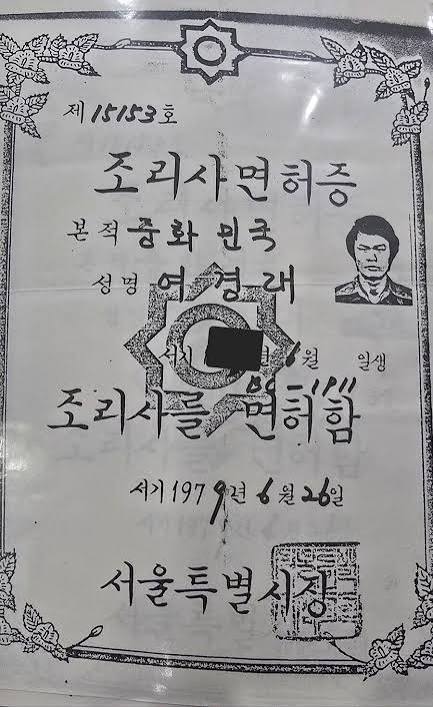 제 15153호
조리사면허증
본적 중화 민국
성명 여경래
서기 월 6월 일생
조리사를 면허함
서기 1979년 6월 26일
서울특별시장